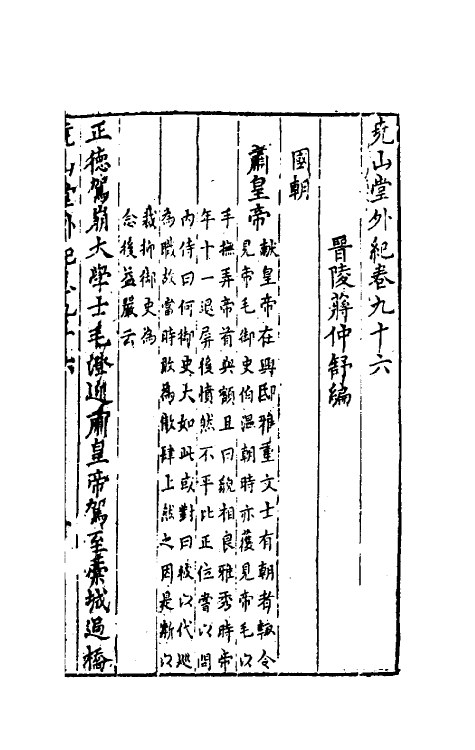 堯山堂外紀卷九十六
晉陵蔣仲舒編
國朝
肅皇帝
獻皇帝在興邸雅重文士有朝者輒令
見帝毛御史伯溫朝時亦獲見帝毛以
手撫弄帝首與額且曰貌相良雅秀時帝
年十一退屏後憤然不平比正位嘗以問
內侍曰何御史大如此或對曰彼以代巡
為職故當時敢為散肆上然之因是漸以
裁抑御史為
念後益嚴云
正德駕崩大學士毛澄迎肅皇帝駕至藁城過橋